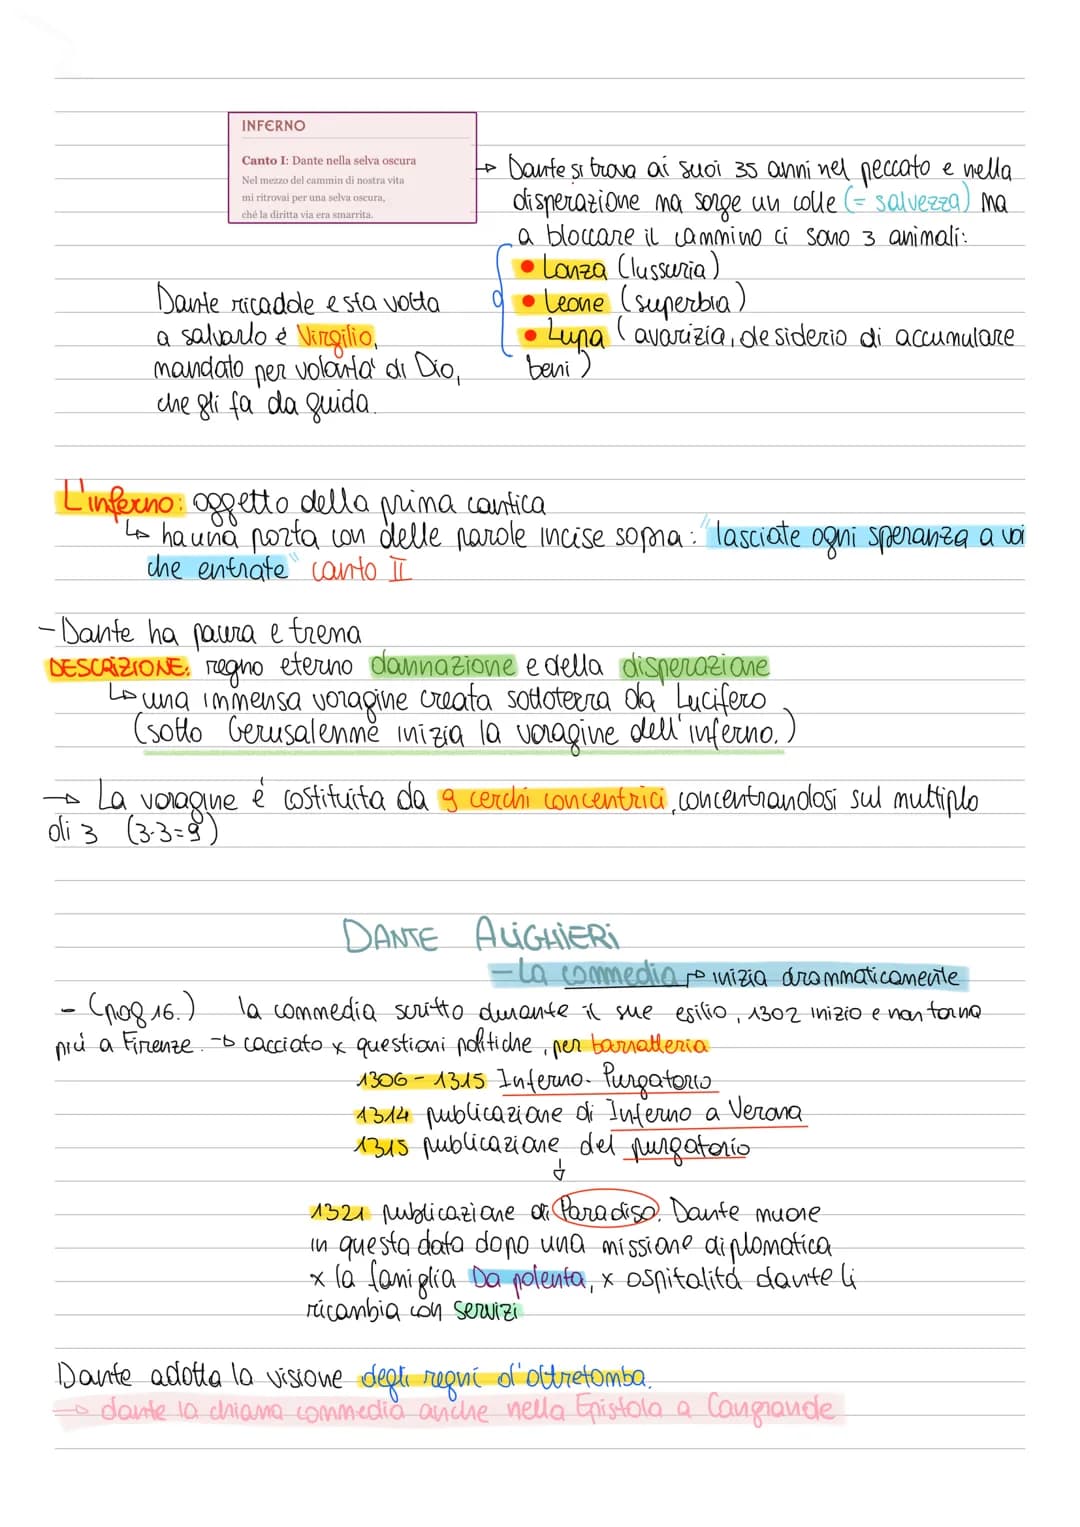 INFERNO
Canto I: Dante nella selva oscura
Nel mezzo del cammin di nostra vita
mi ritrovai per una selva oscura,
ché la diritta via era smarrita.
Dante si trova ai suoi 35 anni nel peccato e nella
disperazione ma sorge un colle (= salvezza) ma
a bloccare il cammino ci sono 3 animali:
• Lonza (lussuria)
• Leone (superbia)
• Lupa (avarizia, desiderio di accumulare
beni)
Dante ricadde e sta volta
a salvarlo è Virgilio,
mandato per volontà di Dio,
che gli fa da guida.
L'inferno: oggetto della prima cantica
↳ ha una porta con delle parole incise sopra: "lasciate ogni speranza a voi
che entrate" canto II
- Dante ha paura e trema
DESCRIZIONE: regno eterno dannazione e della disperazione
↳ una immensa voragine creata sottoterra da Lucifero
(sotto Gerusalemme inizia la voragine dell'inferno.)
→ La voragine é costituita da 9 cerchi concentrici, concentrandosi sul multiplo
di 3 (3·3=9)
DANTE ALIGHIERI
- La commedia → inizia drammaticamente
- (pog 16.) la commedia scritto durante il sue esilio, 1302 inizio e non torna
più a Firenze. → cacciato x questioni politiche, per barratteria
1306 - 1315 Inferno - Purgatorio
1314 publicazione di Inferno a Verona
1315 publicazione del purgatorio
↓
1321 publicazione di Paradiso. Dante muore
in questa data dopo una missione diplomatica
x la famiglia Da polenta, x ospitalitá dante li
ricambia con servizi
Dante adotta la visione degli regni d'oltretomba.
→ dante la chiama commedia anche nella Epistola a Cangrande